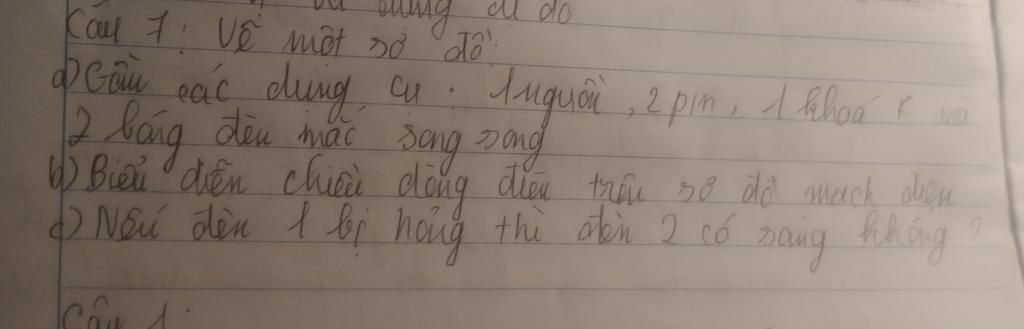 và dùng cụ đo
Câu 7: Vẽ một sơ đồ:
a) Gồm các dụng cụ: 1 nguồn, 2 pin, 1 khoá K và
2 bóng đèn mắc song song
b) Biểu diễn chiều dòng điện trên sơ đồ mạch điện
c) Nếu đèn 1 bị hỏng thì đèn 2 có sáng không?
Câu 1: